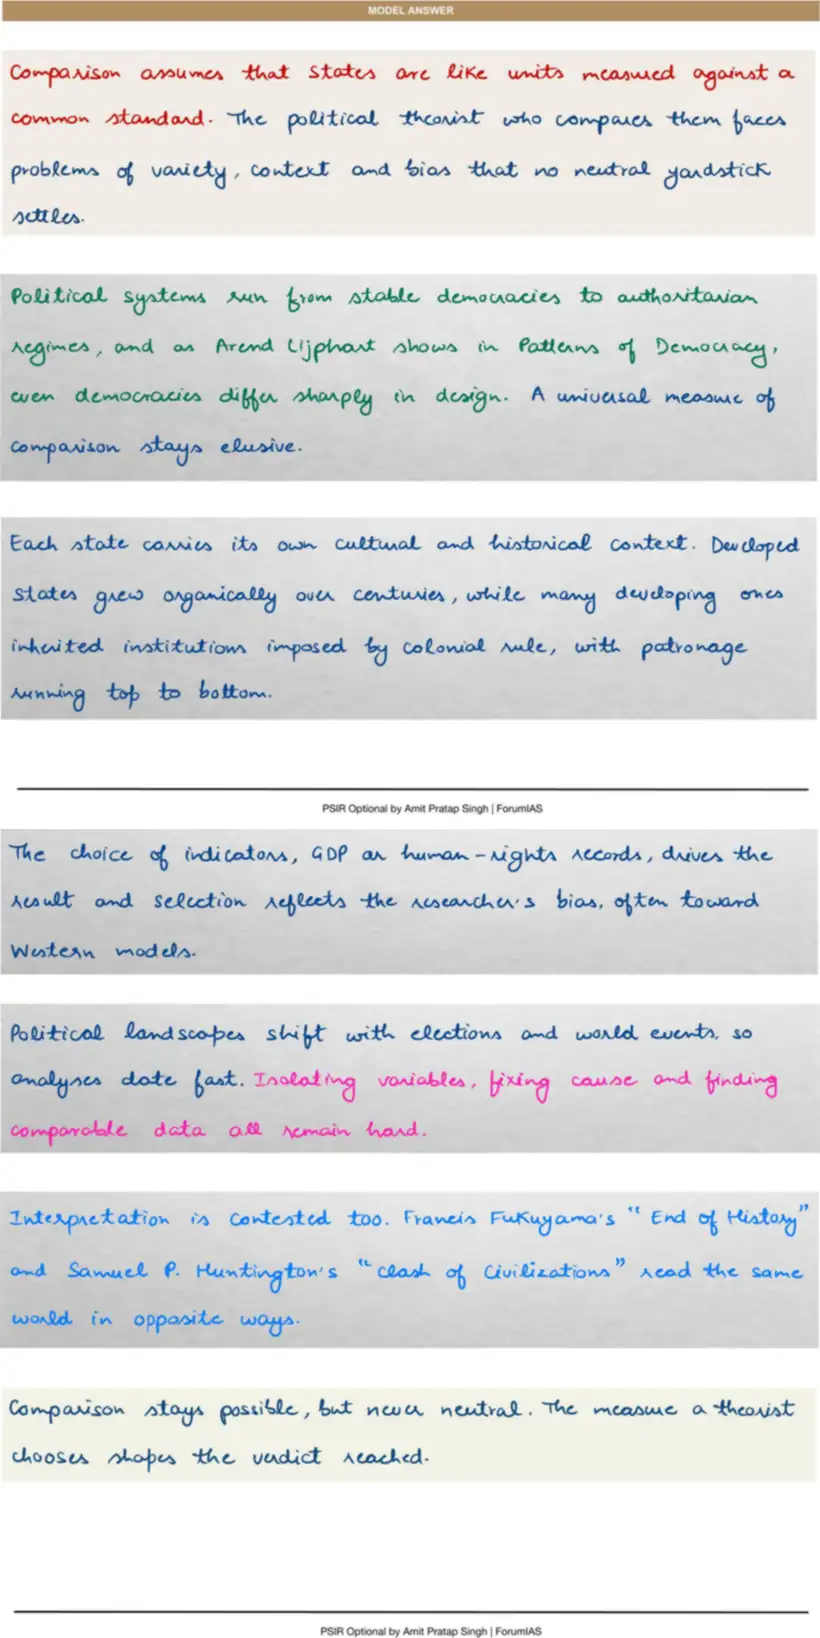 MODEL ANSWER
Comparison assumes that states are like units measured against a
common standard. The political theorist who compares them faces
problems of variety, context and bias that no neutral yardstick
settles.
Political systems run from stable democracies to authoritarian
regimes, and as Arend Lijphart shows in Patterns of Democracy,
even democracies differ sharply in design. A universal measure of
comparison stays elusive.
Each state carries its own cultural and historical context. Developed
states grew organically over centuries, while many developing ones
inherited institutions imposed by colonial rule, with patronage
running top to bottom.
PSIR Optional by Amit Pratap Singh | ForumIAS
The choice of indicators, GDP or human-rights records, drives the
result and selection reflects the researcher's bias, often toward
Western models.
Political landscapes shift with elections and world events, so
analyses date fast. Isolating variables, fixing cause and finding
comparable data all remain hard.
Interpretation is contested too. Francis Fukuyama's "End of History"
and Samuel P. Huntington's "Clash of Civilizations" read the same
world in opposite ways.
Comparison stays possible, but never neutral. The measure a theorist
chooses shapes the verdict reached.
PSIR Optional by Amit Pratap Singh | ForumIAS